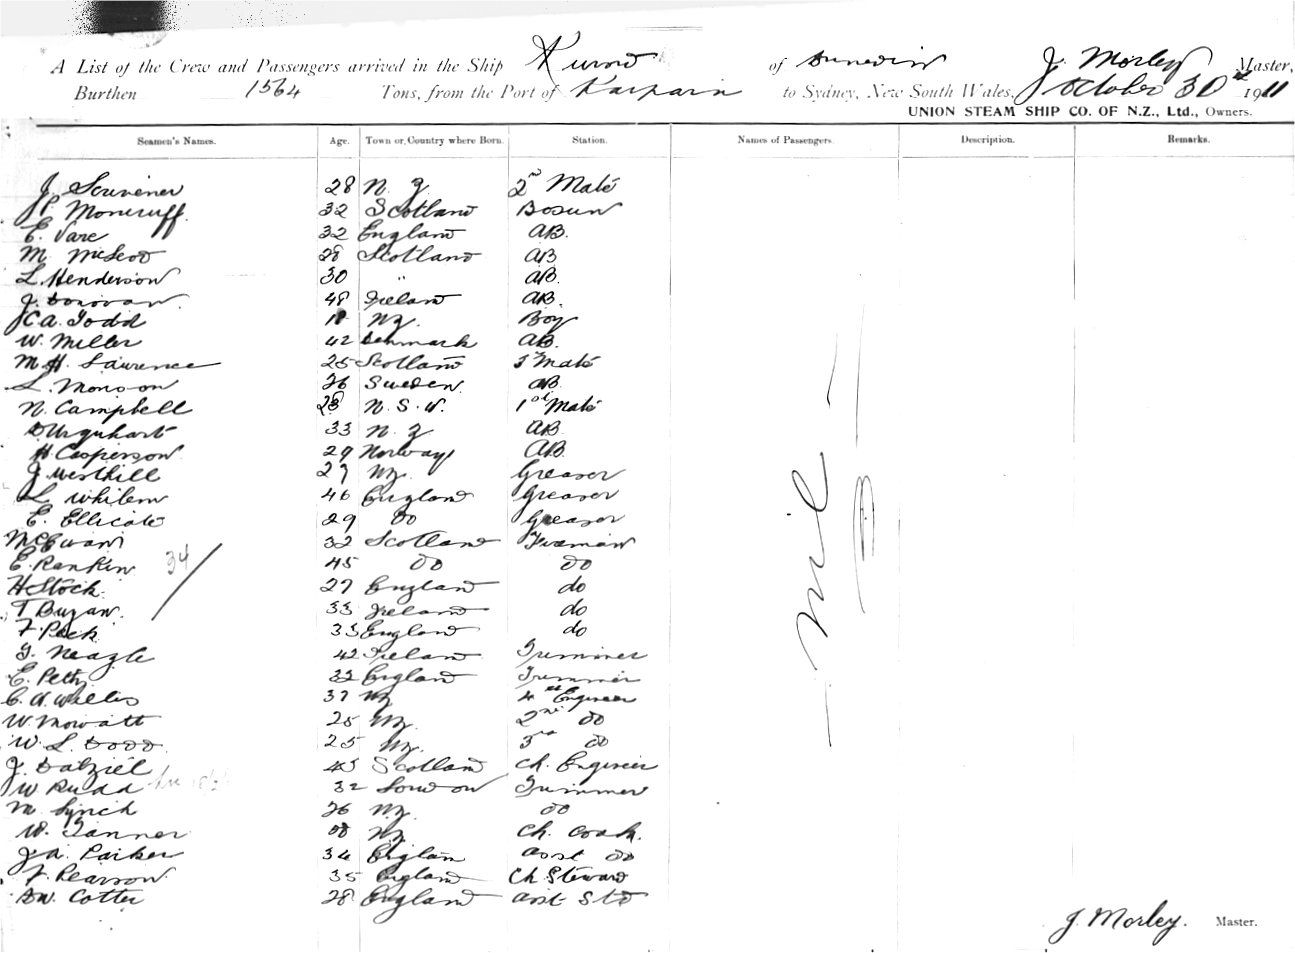 A List of the Crew and Passengers arrived in the Ship Kurow of Dunedin J. Morley Master,
Burthen 1564 Tons, from the Port of Kaipara to Sydney, New South Wales, October 30th 1911
UNION STEAM SHIP CO. OF N.Z., Ltd., Owners.
Seamen's Names. Age. Town or Country where Born. Station. Names of Passengers. Description. Remarks.
J. Scrivener 28 N.Z. 2nd Mate
J.P. Moncruff 32 Scotland Bosun
E. Vare 32 England AB.
M. McLeod 28 Scotland AB
L. Henderson 30 " AB.
J. Donovan 48 Ireland AB.
J.C.A. Todd 18 NZ. Boy
W. Miller 42 Denmark AB.
M.H. Lawrence 25 Scotland 3rd Mate
L. Monson 26 Sweden. AB
N. Campbell 28 N.S.W. 1st Mate
D Urquhart 33 N.Z AB
H. Casperson 29 Norway AB
J. Westhill 27 NZ. Greaser
L Whilem 46 England Greaser
E. Ellicate 29 Do Greaser
McEwan 32 Scotland Fireman
E. Rankin 45 Do Do
34
H Stock. 27 England do
T Buzan. 33 Ireland do
F Peck 33 England do
T. Neagle 42 Ireland Trimmer
E. Petty 32 England Trimmer
C.A. Willis 37 NZ 4th Engineer
W. Mowatt 25 NZ. 2nd Do
W.L. Dodd 25 NZ. 3rd Do
J. Dalziel 43 Scotland Ch. Engineer
W Rudd 32 London Trimmer
M Lynch 26 NZ. Do
W. Tanner NZ Ch. Cook.
J.A. Parker 34 England asst Do
F. Pearson 35 England Ch Steward
D.W. Cotter 28 England asst Std
— Nil —
J. Morley. Master.